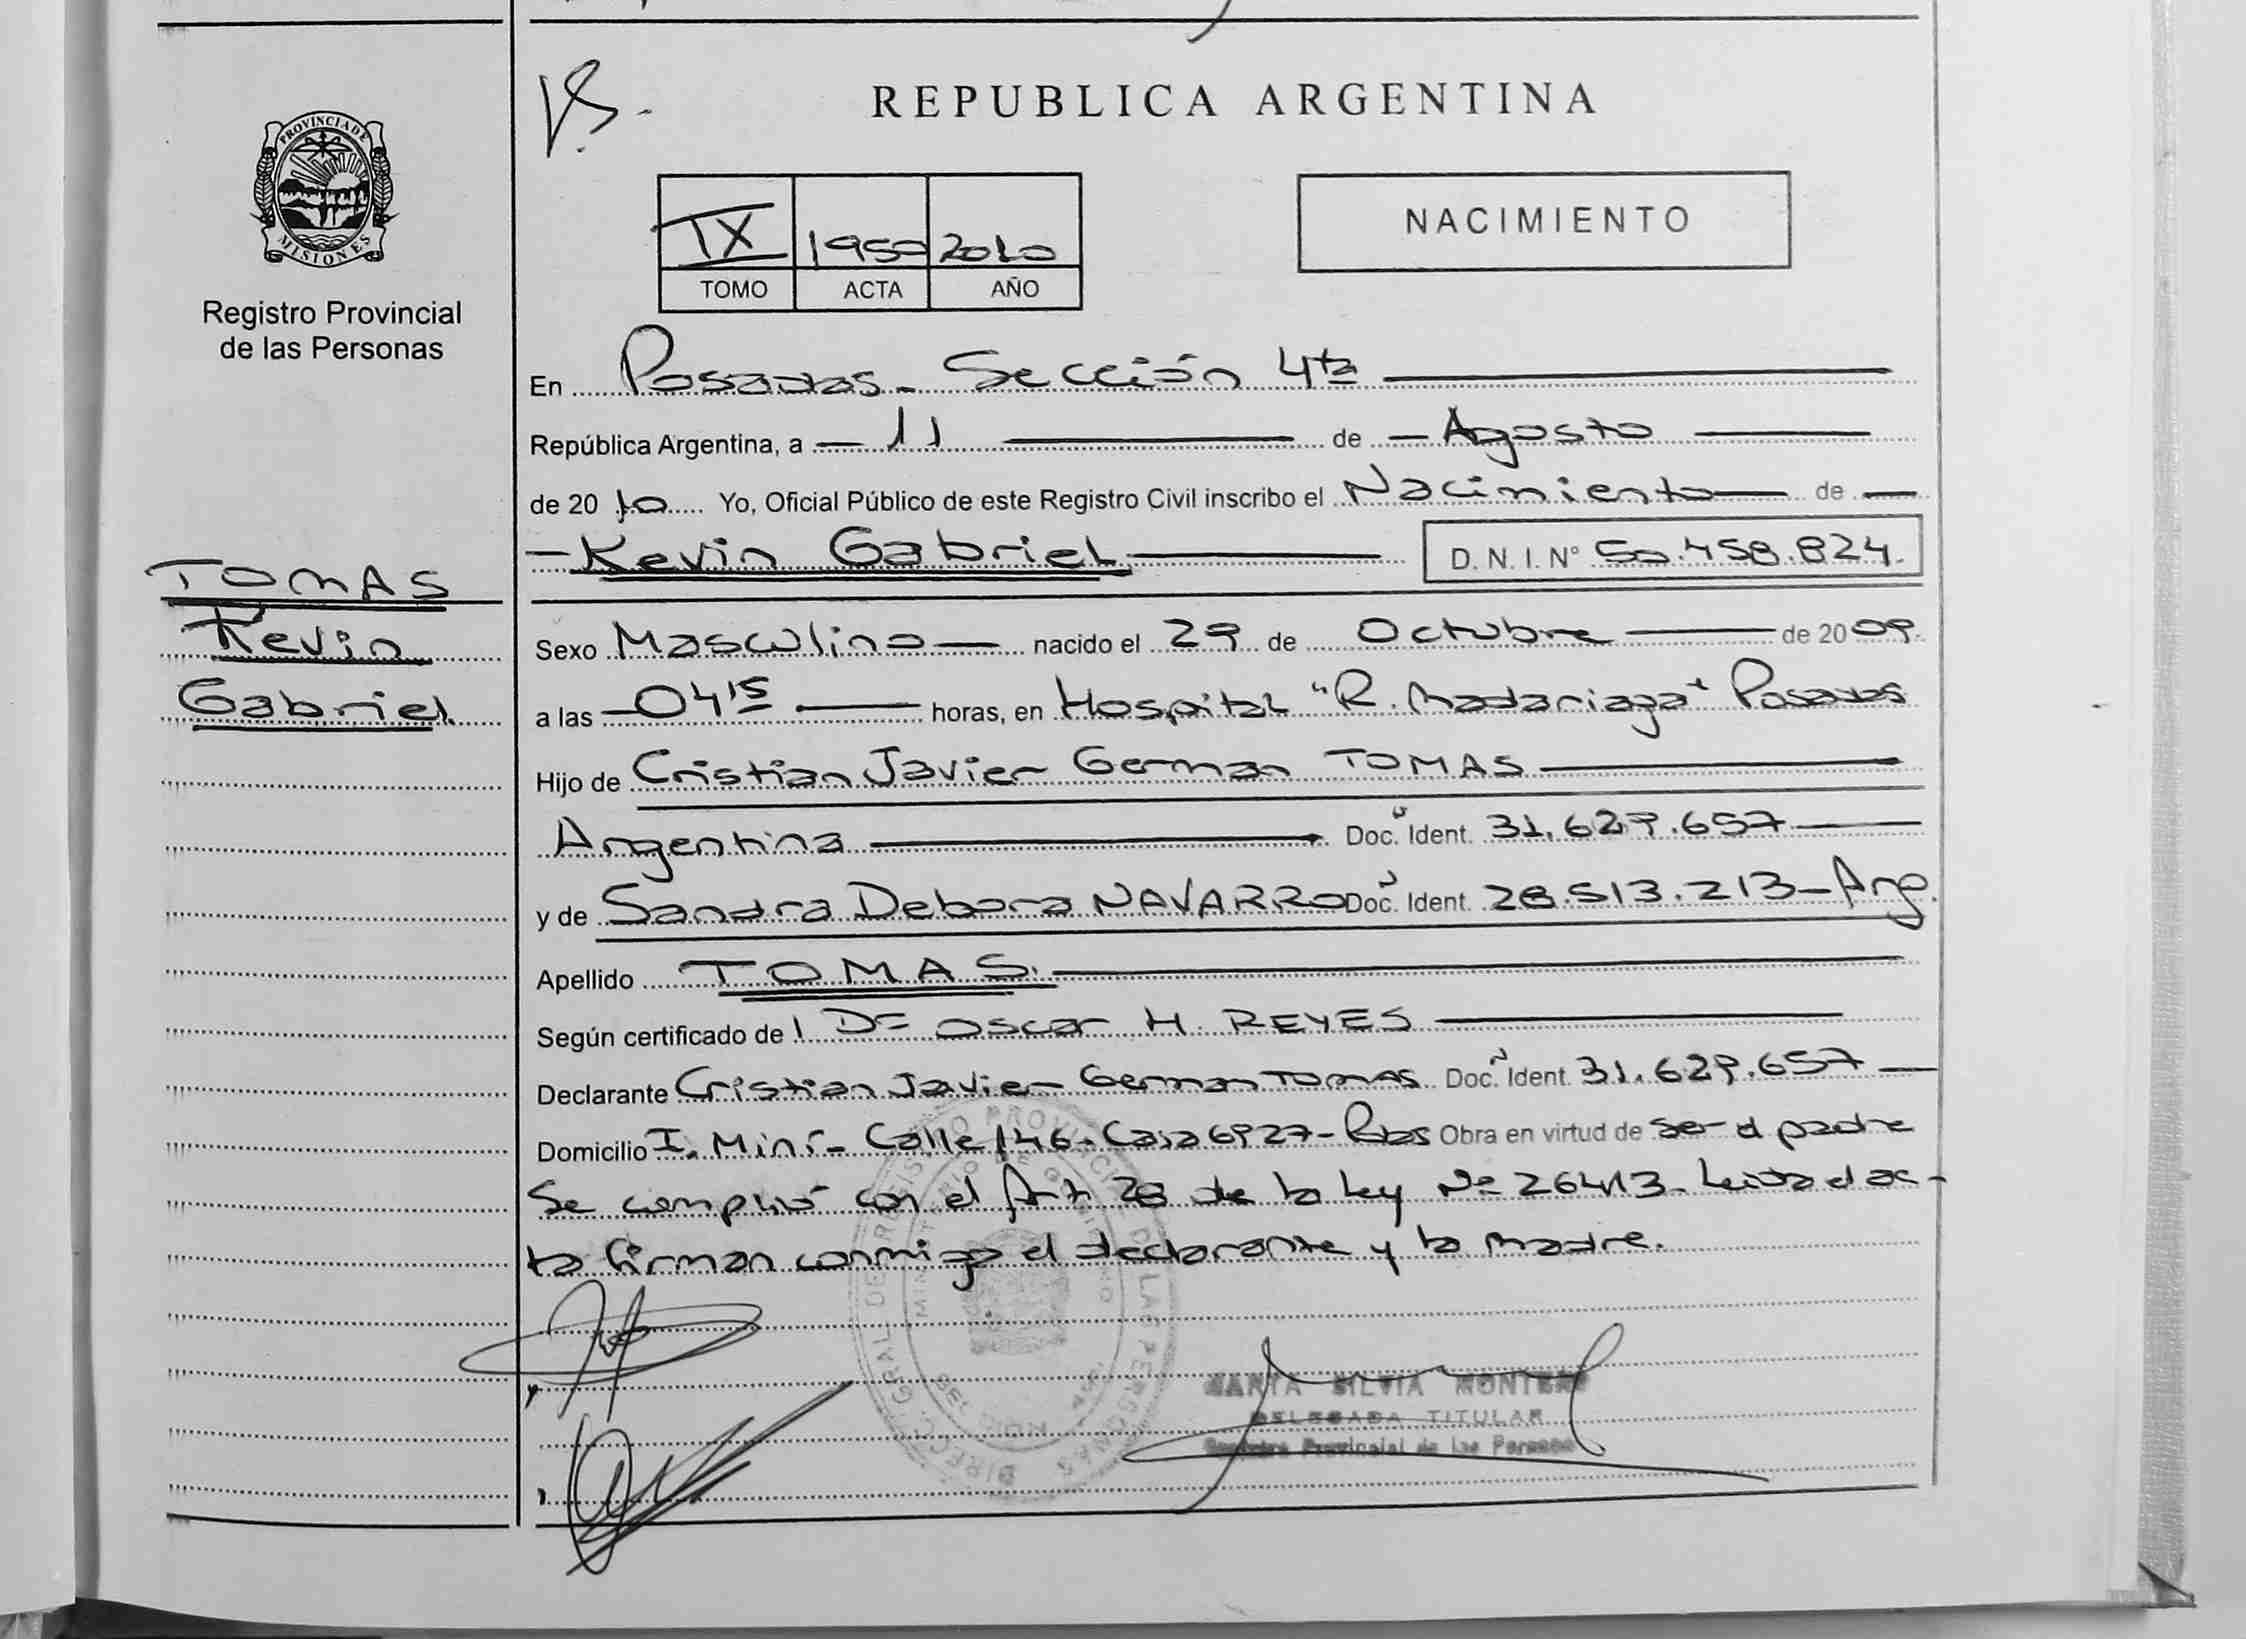 REPUBLICA ARGENTINA
PROVINCIA DE
MISIONES
Registro Provincial
de las Personas
IX 1950 2010
TOMO ACTA AÑO
NACIMIENTO
En Posadas - Sección 4ta
República Argentina, a 11 de Agosto
de 2010 Yo, Oficial Público de este Registro Civil inscribo el Nacimiento de
Kevin Gabriel D. N. I. N° 50.458.824.
TOMAS
Kevin
Gabriel
Sexo Masculino nacido el 29 de Octubre de 2009.
a las 04 15 horas, en Hospital "R. Madariaga" Posadas
Hijo de Cristian Javier German TOMAS
Argentina Doc. Ident. 31.629.657
y de Sandra Debora NAVARRO Doc. Ident. 28.513.213 - Arg.
Apellido TOMAS.
Según certificado de Dr Oscar H. REYES
Declarante Cristian Javier German TOMAS Doc. Ident. 31.629.657
Domicilio I. Miní - Calle 146 - Casa 6927 - Pdas Obra en virtud de ser el padre
Se cumplió con el Art. 28 de la ley Nº 26413. Leida el ac-
ta firman conmigo el declarante y la madre.
DIRECC. GRAL. DE REGISTRO PROVINCIAL DE LAS PERSONAS
MINISTERIO DE GOBIERNO
SILVIA
DELEGADA TITULAR
Provincial de las Personas